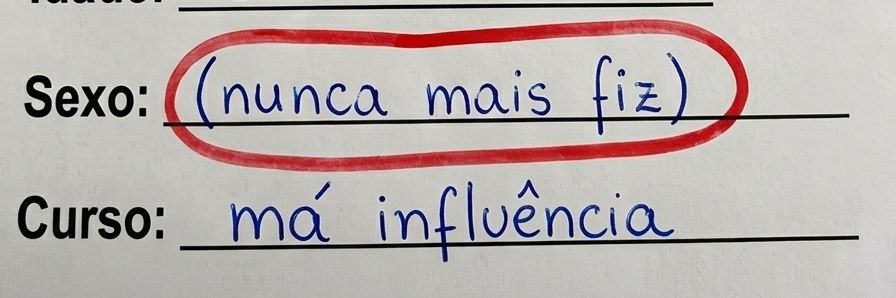 Idade:
Sexo: (nunca mais fiz)
Curso: má influência